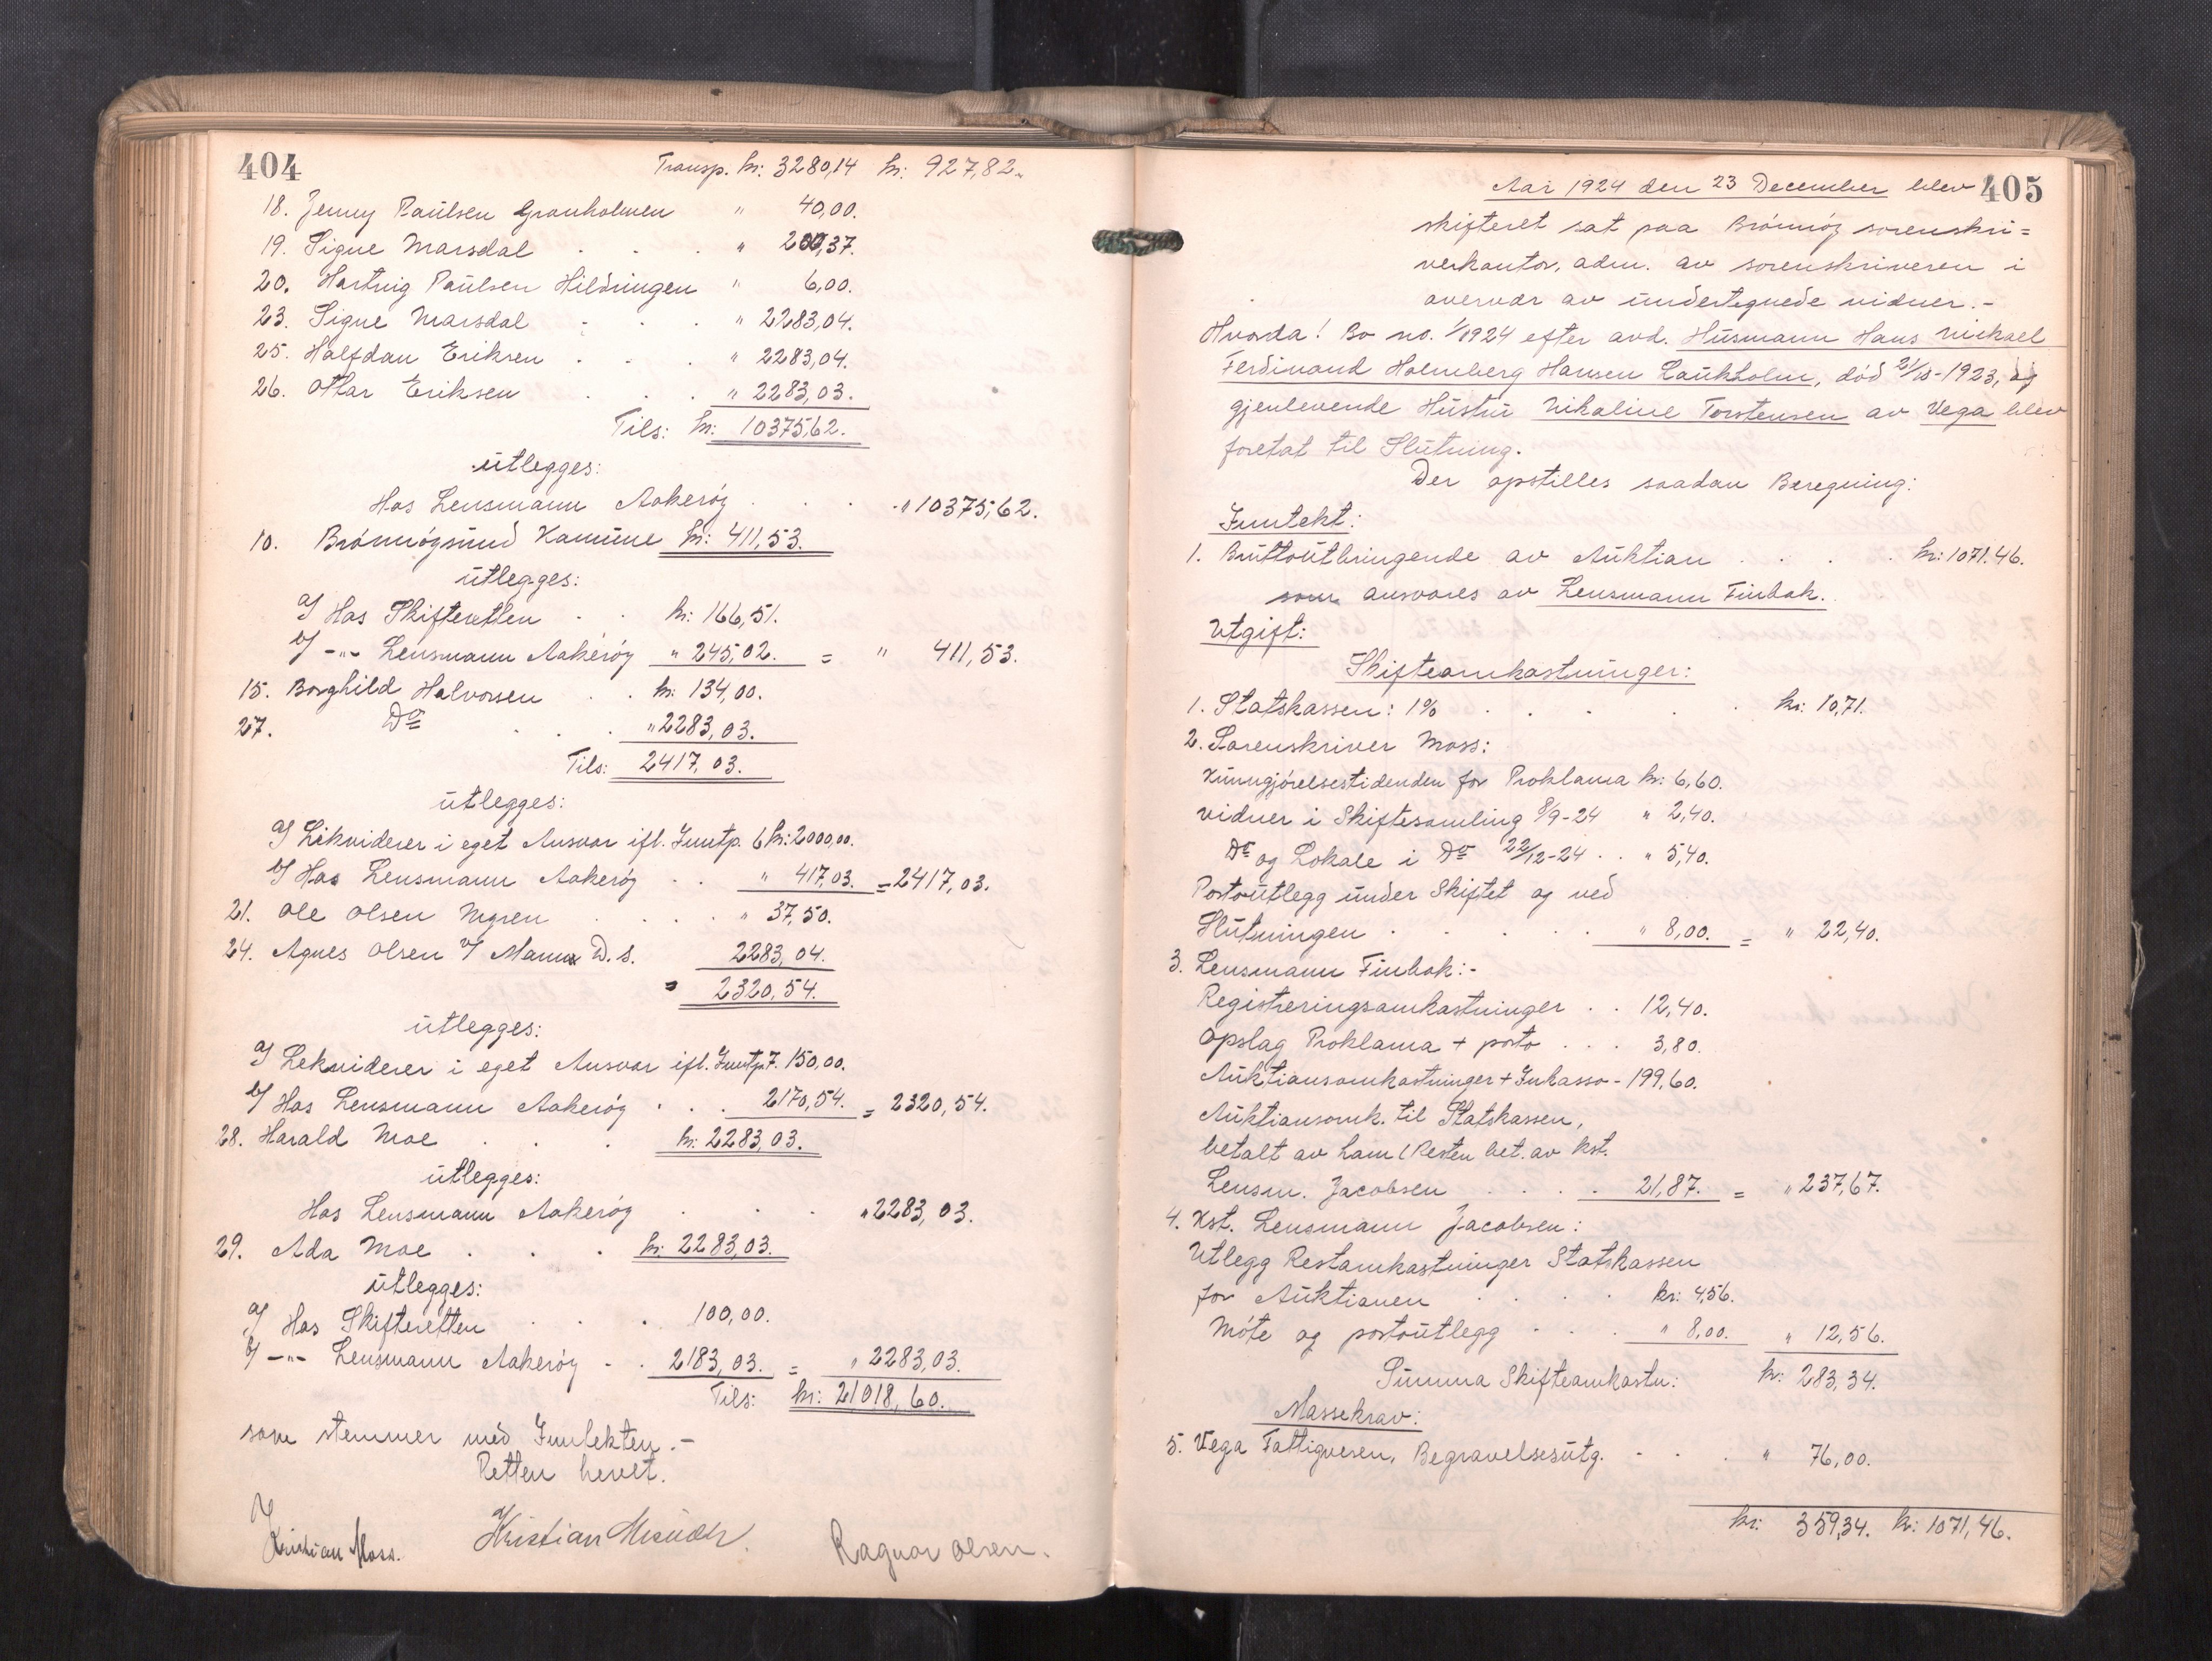 404
Transp. kr: 3280,14 kr: 927,82.
18. Jenny Paulsen Granholmen " 40,00.
19. Signe Marsdal . . . " 200,37.
20. Hartvig Paulsen Hildringen " 6,00.
23. Signe Marsdal - . . " 2283,04.
25. Halfdan Eriksen . . . " 2283,04.
26. Ottar Eriksen . . . " 2283,03.
Tils: kr: 10375,62.
utlegges:
Hos Lensmann Aakerøy . . . " 10375,62.
10. Brønnøysund Komune kr: 411,53.
utlegges:
a/ Hos Skifteretten . . kr: 166,51.
b/ -"- Lensmann Aakerøy " 245,02. = " 411,53.
15. Borghild Halvorsen . . kr: 134,00.
27. Do . . . " 2283,03.
Tils: 2417,03.
utlegges:
a/ Likviderer i eget Ansvar ifl. Inntp. 6 kr: 2000,00.
b/ Hos Lensmann Aakerøy . . " 417,03. = 2417,03.
21. Ole Olsen Myren . . . . " 37,50.
24. Agnes Olsen v/ Mann D. S. 2283,04.
= 2320,54.
utlegges:
a/ Lekviderer i eget Ansvar ifl. Inntp. 7. 150,00.
b/ Hos Lensmann Aakerøy . . . 2170,54. = 2320,54.
28. Harald Moe . . . kr: 2283,03.
utlegges:
Hos Lensmann Aakerøy . . . " 2283,03.
29. Ada Moe . . . kr: 2283,03.
utlegges:
a/ Hos Skifteretten . . . 100,00.
b/ -"- Lensmann Aakerøy - . 2183,03. = " 2283,03.
Tils: kr: 21018,60.
som stemmer med Inntekten.-
Retten hevet.
Kristian Moss. Kristian Ragnar Olsen.
405
Aar 1924 den 23 December blev
skifteret sat paa Brønnøy sorenskri=
verkontor, adm. av sorenskriveren i
overvær av undertegnede vidner.-
Hvorda! Bo no. 1/1924 efter avd. Husmann Hans Mickael
Ferdinand Holmberg Hansen Laukholm, død 2/10-1923, og
gjenlevende Hustru Nikoline Torstensen av Vega blev
foretat til Slutning.
Der opstilles saadan Beregning:
Inntekt:
1. Bruttoutbringende av Auktion . . . . kr: 1071.46.
som ansvares av Lensmann Finbak.
Utgift:
Skifteomkostninger:
1. Statskassen: 1% . . . . . kr: 10,71.
2. Sorenskriver Moss:
Kunngjørelsestidenden for Proklama kr: 6,60.
vidner i Skiftesamling 8/9-24 " 2,40.
Do og Lokale i Do 22/12-24 . . " 5,40.
Portoutlegg under Skiftet og ved
Slutningen . . . . . " 8,00. = " 22,40.
3. Lensmann Finbak:-
Registreringsomkostninger . . 12,40.
Opslag Proklama + porto . . . 3,80.
Auktionsomkostninger + Inkasso - 199,60.
Auktionsomk. til Statskassen,
betalt av ham (Resten bet. av kst.
Lensm. Jacobsen . . . . 21,87. = " 237,67.
4. Kst. Lensmann Jacobsen:
Utlegg Restomkostninger Statskassen
for Auktionen . . . . kr: 4,56.
Møte og portoutlegg . . . " 8,00. " 12,56.
Summa Skifteomkostn: kr: 283,34.
Massekrav:
5. Vega Fattigvesen, Begravelsesutg. - . . " 76,00.
kr: 359,34. kr: 1071,46.